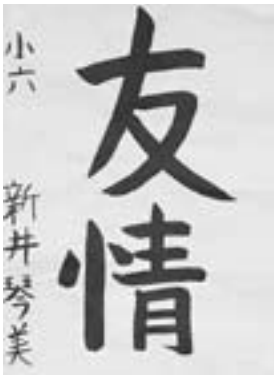 友情
小六 新井琴美